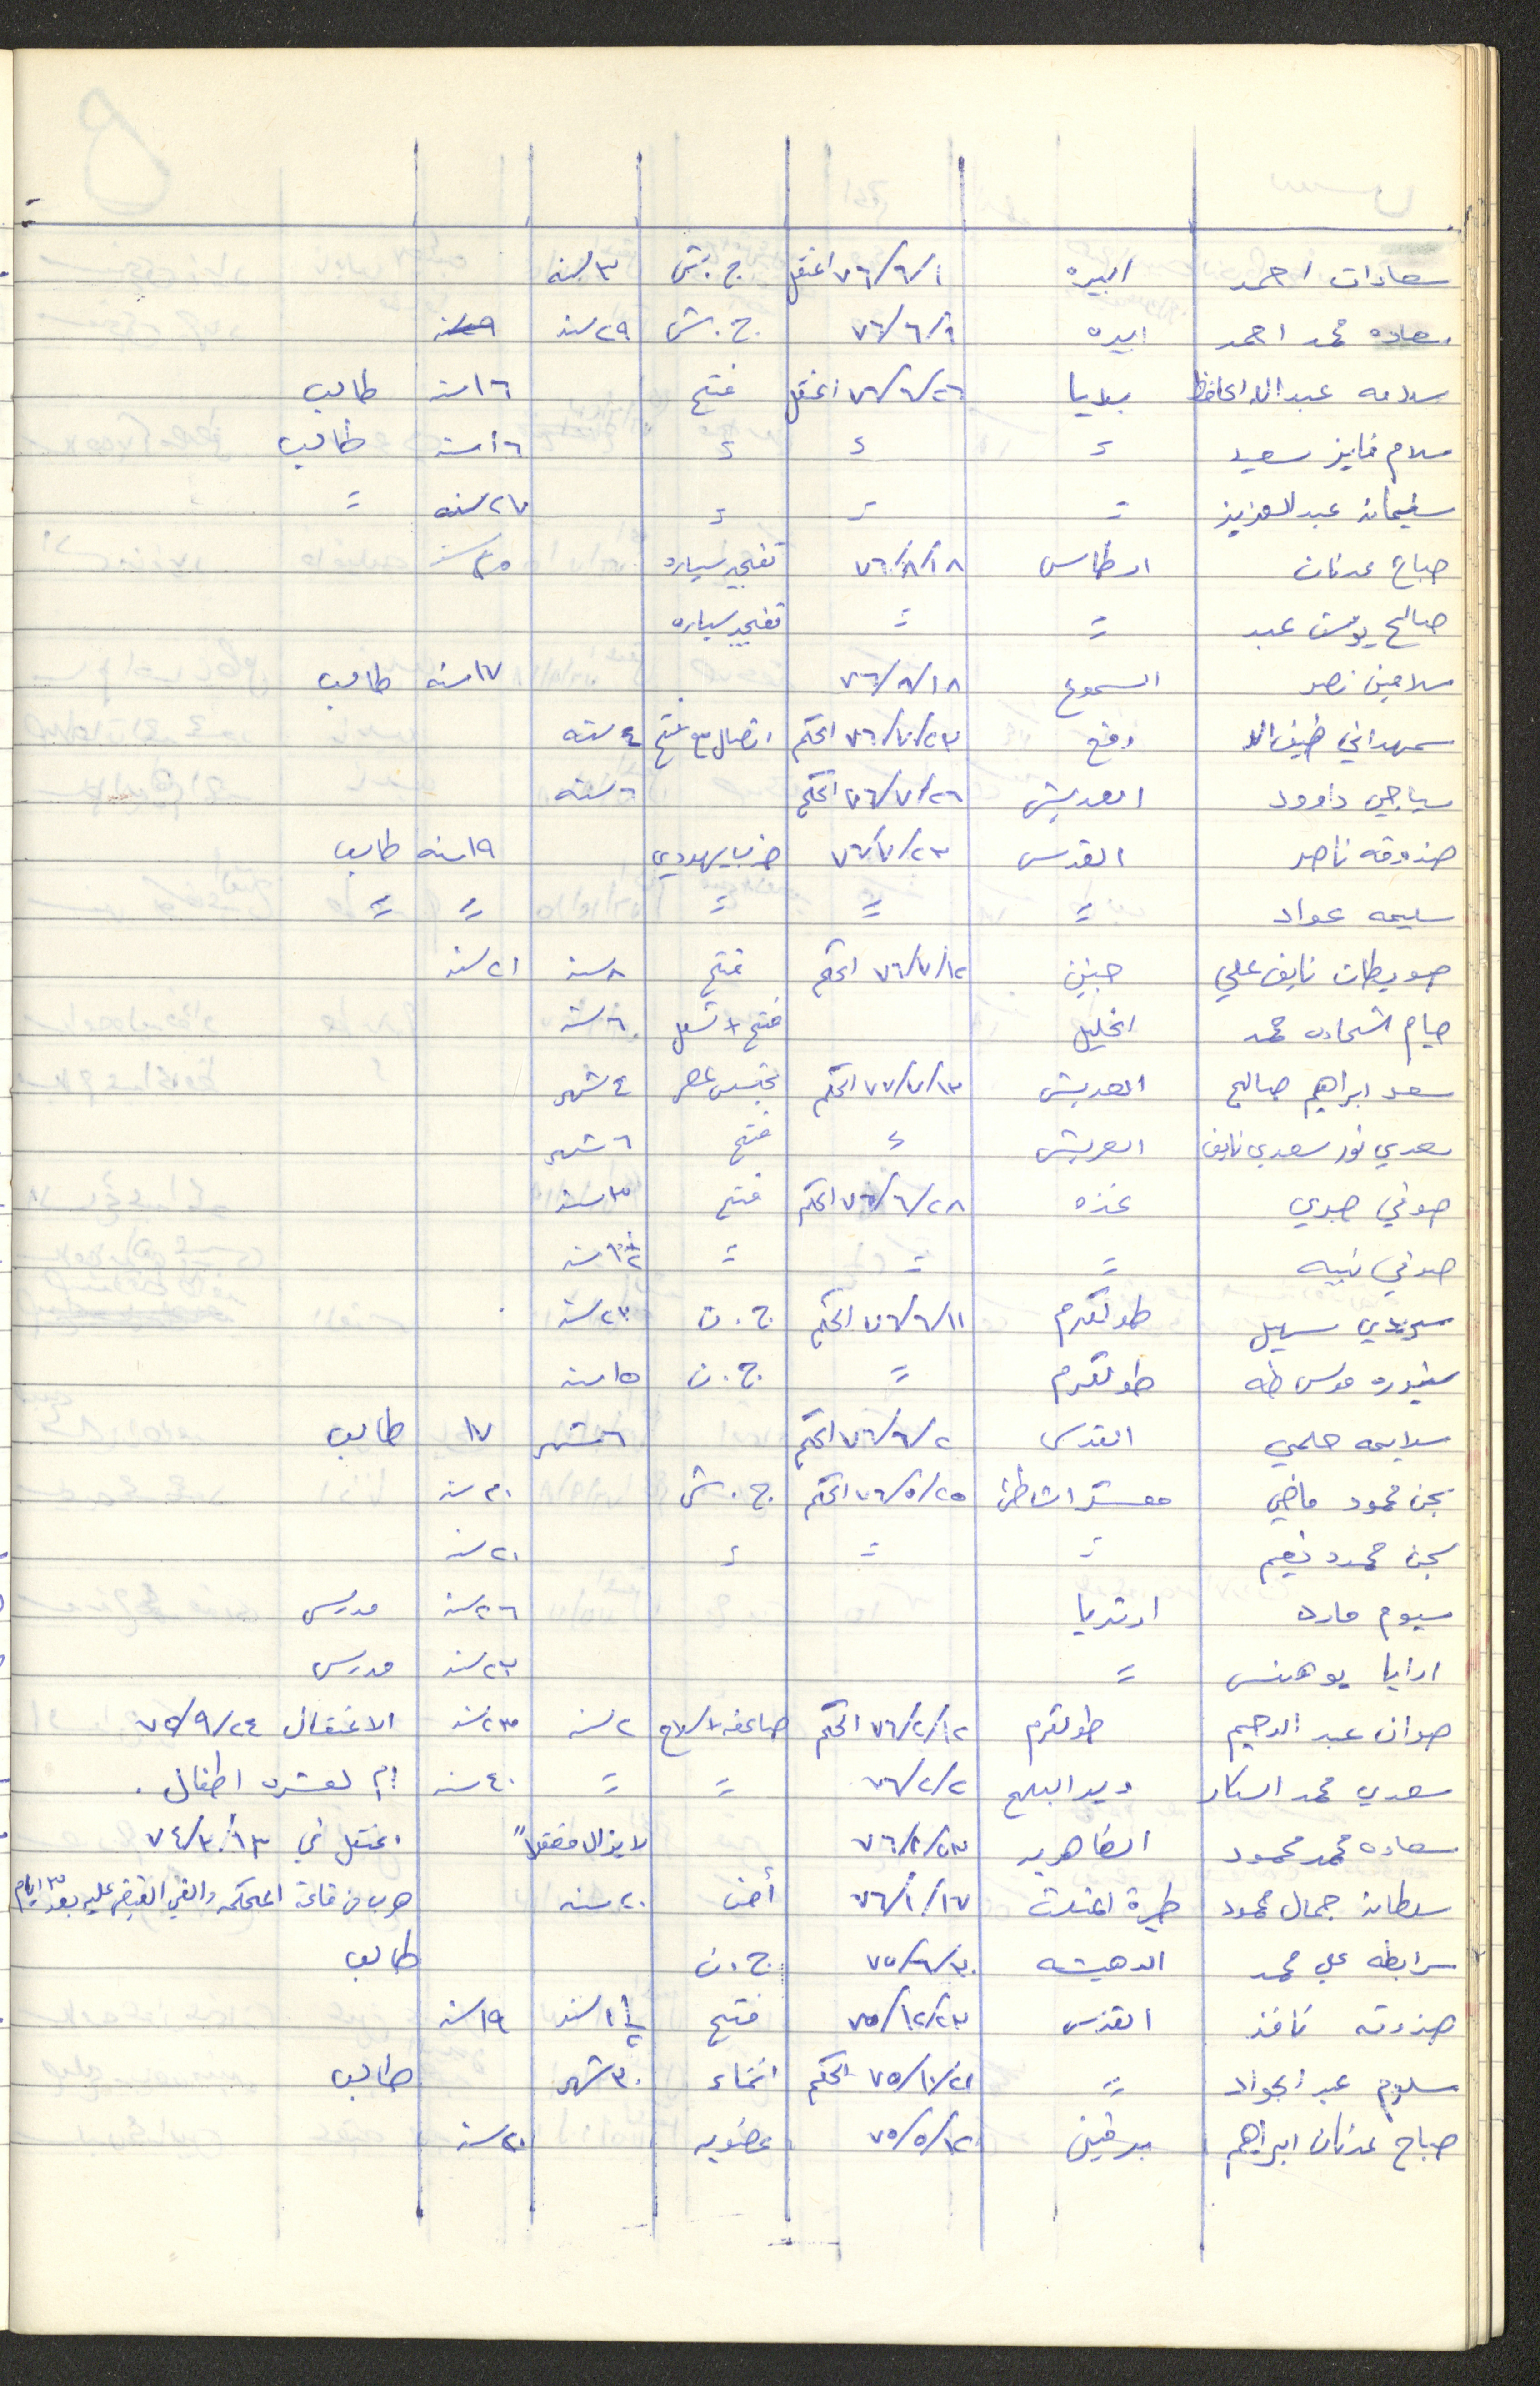 سعادات احمد البيره ٧٦/٦/١ اعتقل ج.ش ٣ سنه
سعاده محمد احمد البيره ٧٦/٦/٩ ج.ش ٢٩ سنه
سلامه عبدالله الحافظ بلديا ٧٦/٦/٢٦ اعتقل فتح ١٦ سنه طالب
سلام فايز سعيد = = = ١٦ سنه طالب
سليمان عبد العزيز = = = ٢٧ سنه =
صباح عدنان ارطاس ٧٦/٨/١٨ تفجير سياره
صالح يوسف عبد = = تفجير سياره
سلامين نصر السموع ٧٦/٨/١٨ ١٧ سنه طالب
سمهداني ضيف الله رفح ٧٦/٧/٢٣ الحكم اتصال مع فتح ٤ سنه
سياجي داوود العريش ٧٦/٧/٢٦ الحكم ٦ سنه
صندوقه ناصر القدس ٧٦/٧/٢٣ ضرب يهودي ١٩ سنه طالب
سليمه عواد = = = = =
صويطات نايف علي جنين ٧٦/٧/١٢ الحكم فتح ٨ سنه ٢١ سنه
صيام الشحاده محمد الخليل فتح ٦ سنه
سعد ابراهيم صالح العريش ٧٦/٧/١٣ الحكم تجسس مصر ٤ شهر
سعدي نور سعدي نايف العريش = فتح ٦ شهر
صوفي صبري غزه ٧٦/٦/٢٨ الحكم فتح ٣ سنه
صوفي نبيه = = =
سهيل طولكرم ٧٦/٦/١١ الحكم ج.ن ٢٣ سنه
موسى طه طولكرم = ج.ن ١٥ سنه
سلايمه حلمي القدس ٧٦/٦/٢ الحكم ٦ شهر ١٧ طالب
محمود ماضي معسكر الشاطئ ٧٦/٥/٢٥ الحكم ج.ش ٢٠ سنه
محمود نعيم = = = ٢١ سنه
سيوم ارتريا ٢٦ سنه مدرس
ارايا يوهنس = ٢٣ سنه مدرس
صوان عبد الرحيم طولكرم ٧٦/٢/١٢ الحكم صاعقه + سلاح ٢ سنه ٢٣ سنه الاعتقال ٧٥/٩/٢٤
سعدي محمد دير البلح ٧٦/٢/٢ = = ٤٠ سنه ام لعشرة اطفال .
سعاده محمد محمود الظاهريه ٧٦/٢/٢٣ لا يزال معتقلاً اعتقل في ٧٤/٣/١٣
سلطان جمال محمود طيرة المثلث ٧٦/١/١٧ أمن ٢٠ سنه هرب من قاعة المحكمه والقي القبض عليه بعد ٣ ايام
سرابطه علي محمد الدهيشه ٧٥/٦/٣٠ ج.ن طالب
صندوقه نافذ القدس ٧٥/١٢/٢٣ فتح ١ ١/٢ سنه ١٩ سنه
سلوم عبد الجواد = ٧٥/١٠/٢١ الحكم انتماء ٣٠ شهر طالب
صباح عدنان ابراهيم برقين ٧٥/٥/١٢ عضويه ٢٠ سنه